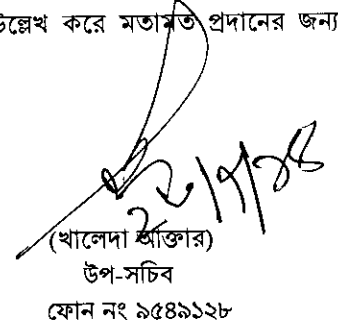 উল্লেখ করে মতামত প্রদানের জন্য
(খালেদা আক্তার)
উপ-সচিব
ফোন নং ৯৫৪৯১২৮